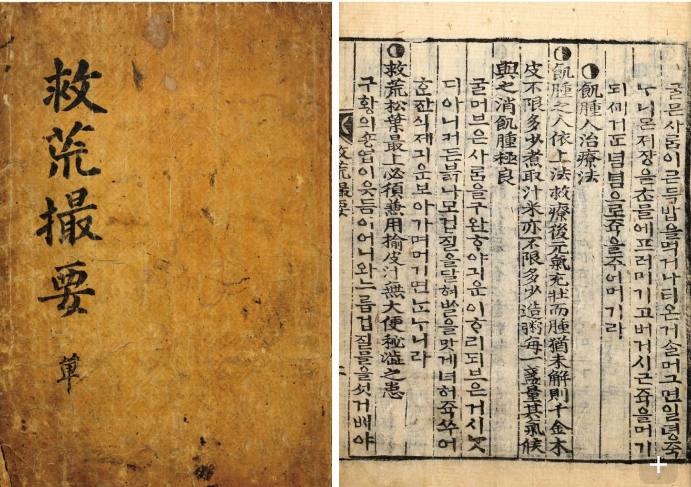 救荒撮要
單
굴믄사ᄅᆞᆷ이ᄀᆞ득밥을먹거나더온거슬머그면일뎡죽
ᄂᆞ니몬져쟝을ᄎᆞᆫ믈에프러머기고버거시근쥭을머기
념념으로쥭을주어머기라
飢腫人治療法
飢腫之人依上法救療後元氣充壯而腫猶未解則千金木
皮不限多少煮取汁米亦不限多少造粥每一盞量其氣候
與之消飢腫極良
굴머브은사ᄅᆞᆷ을구완ᄒᆞ야긔운이ᄒᆞ리되브은거시ᄂᆞᆺ
디아니커든븕나모겁질을달혀ᄡᆞᆯ을맛게녀허쥭쑤어
ᄒᆞᆫ잔식제긔운보아가며머기면됸ᄂᆞ니라
救荒松葉最上必須兼用楡皮汁無大便秘澁之患
구황의숑엽이읏듬이어니와느릅겁질믈을섯거ᄡᅥ야
救荒撮要